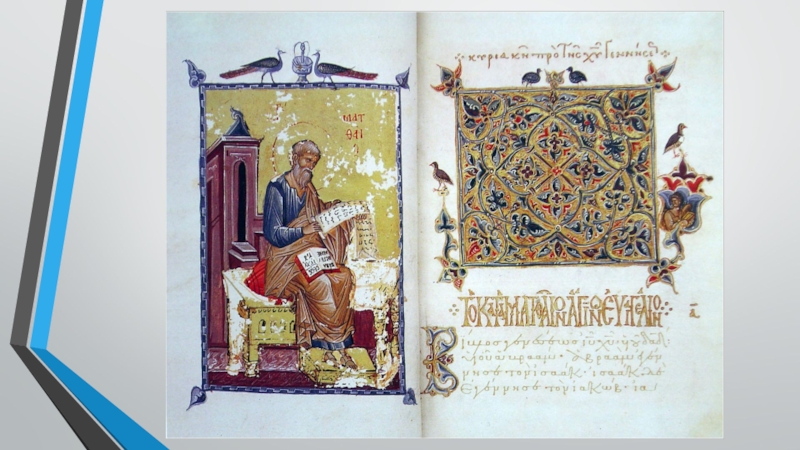 ΜΑΤ
ΘΑΙ
κυριακῆ πρὸ τῆς χῦ γεννήσε
ΤΟ ΚΑΤΑ ΜΑΤΘΑΙΟΝ ΑΓΙΟΝ ΕΥΑΓΓΕΛΙΟΝ
Βίβλος γενέσεως ιῦ χῦ υἱοῦ δαδ
υἱοῦ ἀβραάμ. ἀβραάμ ἐγέν
νησε τὸν ἰσαάκ. ἰσαάκ δὲ
ἐγέννησε τὸν ἰακώβ. ια